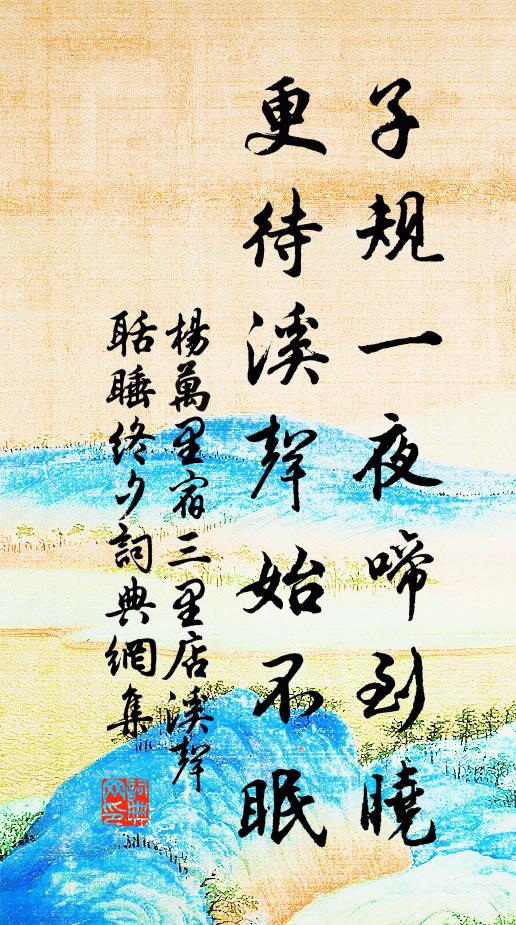 子規一夜啼到曉
更待溪聲始不眠
楊萬里宿三里店溪聲
聒睡終夕詞典網集